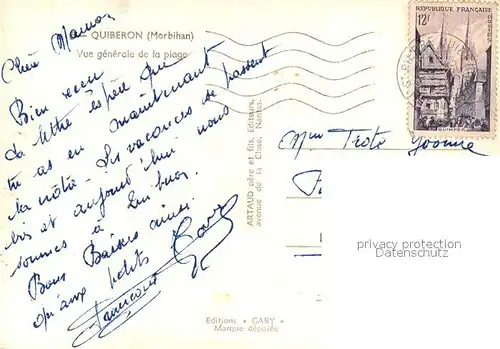 QUIBERON (Morbihan)
Vue générale de la plage
Chère Maman
Bien reçu
ta lettre espère que
tu as en maintenant
la nôtre - Les vacances se passent
bien et aujourd'hui nous
sommes à Quiberon
Bons Baisers ainsi
qu'aux petits
ARTAUD père et fils, Editeurs,
avenue de la Close, Nantes.
Editions « GABY »
Marque déposée
REPUBLIQUE FRANÇAISE
12f
POSTES
QUIMPER
Mme Trote Yvonne
privacy protection
Datenschutz